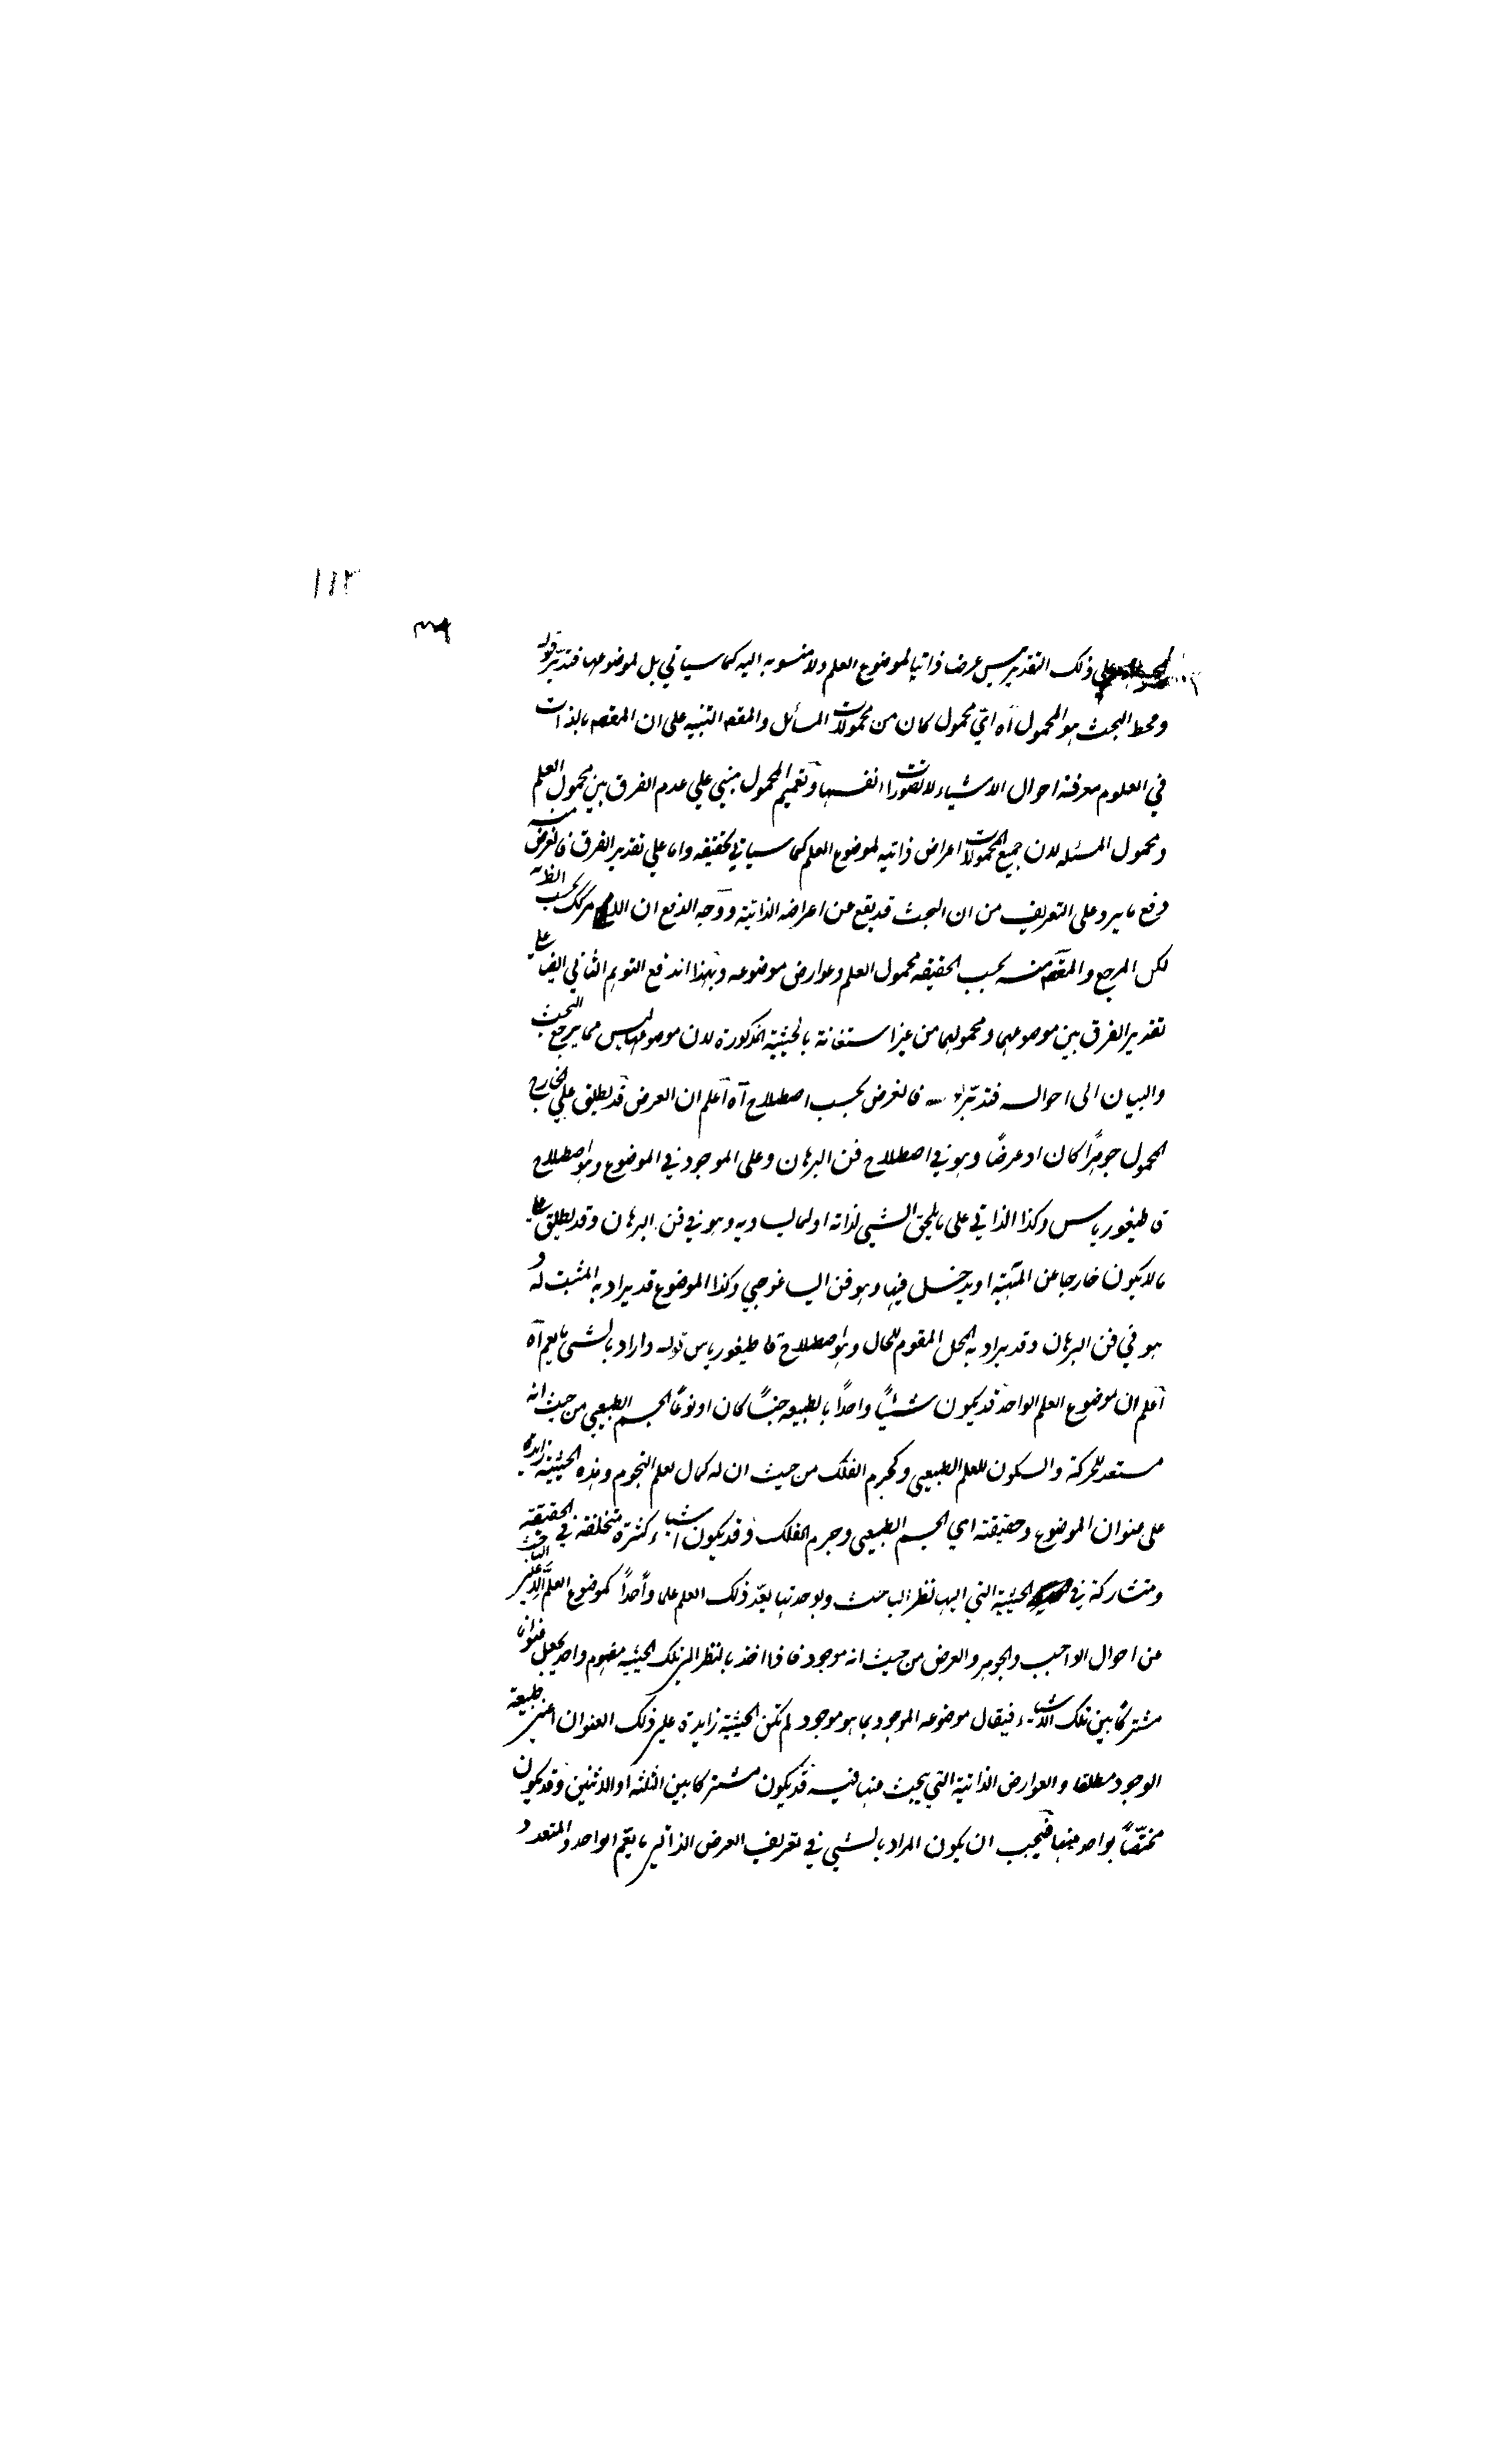 ١١٣
على ذلك التقدير ليس عرضا ذاتيا لموضوع العلم ولا منسوبه اليه كما سياتي بل لموضوعها فتدبر قوله
ومحط البحث هو المحمول آه اي محمول كان من محمولات المسائل والمقصه التنبيه على ان المقصه بالذات
في العلوم معرفة احوال الاشياء لا تصورات انفسها وتعميم المحمول مبني علي عدم الفرق بين محمول العلم
ومحمول المسئله لان جميع المحمولات اعراض ذاتيه لموضوع العلم كما سياتي تحقيقه واما علي تقدير الفرق فالغرض منه
دفع ما يرد على التعريف من ان البحث قد يقع عن اعراضه الذاتية ووجه الدفع ان مركك بحسب الظاه
لكن المرجع والمقصه منه بحسب الحقيقه محمول العلم وعوارض موضوعه وبهذا اندفع التوهم الثاني ايضا علي
تقدير الفرق بين موضوعها ومحمولها من غير استغانة بالحيثية المذكورة لان موضوعها ليس مما يرجع البحث
والبيان الى احواله فتدبر فالغرض بحسب اصطلاح آه اعلم ان العرض قد يطلق علي الخارج
المحمول جوهرًا كان او عرضًا وهو في اصطلاح فن البرهان وعلى الموجود في الموضوع وهو اصطلاح
قاطيغورياس وكذا الذاتي على ما يلحق الشيي لذاته او لما يساويه وهو في فن البرهان وقد يطلق علي
ما لا يكون خارجا عن المهية او يدخل فيها وهو فن ايساغوجي وكذا الموضوع قد يراد به المثبت له و
هو في فن البرهان وقد يراد به المحل المقوم للحال وهو اصطلاح قاطيغورياس قوله واراد بالشيي ما يعم آه
اعلم ان موضوع العلم الواحد قد يكون شيئًا واحدًا بالطبيعه جنسًا كان او نوعًا كالجسم الطبيعي من حيث انه
مستعد للحركة والسكون للعلم الطبيعي وكجرم الفلك من حيث ان له كمال لعلم النجوم وهذه الحيثية زايدة
على عنوان الموضوع وحقيقته اي الجسم الطبيعي وجرم الفلك وقد يكون اشياء كثيرة متخلفة في الحقيقة
ومتشاركة في الحيثية التي اليها نظر الباحث وبوحدتها يعدّ ذلك العلم علما واحدًا كموضوع العلم الباحث
عن احوال الواجب والجوهر والعرض من حيث انه موجود فاذا اخذ بالنظر الي تلك الحيثيه مفهوم واحد يجعل عنوانا
مشتركًا بين تلك الاشياء فيقال موضوعه الموجود بما هو موجود لم تكن الحيثية زايدة علي ذلك العنوان اعني طبيعة
الوجود مطلقا والعوارض الذاتية التي يبحث عنها فيه قد يكون مشتركا بين الثلثه او الاثنين وقد يكون
مختصًا بواحد منها فيجب ان يكون المراد بالشيي في تعريف العرض الذاتي ما يعم الواحد والمتعدد